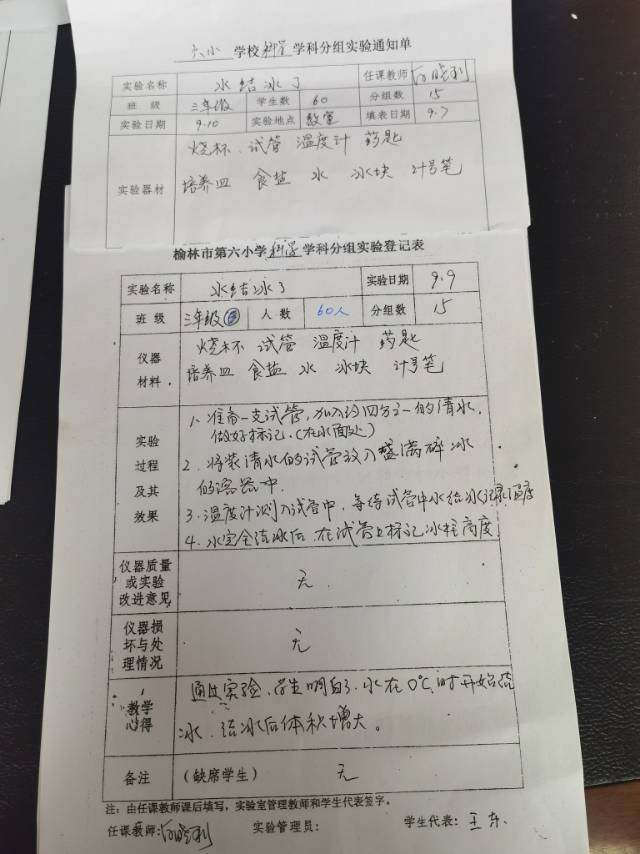 六小 学校 科学 学科分组实验通知单
实验名称 水结冰了 任课教师
班 级 三年级 学生数 60 分组数 15
实验日期 9.10 实验地点 教室 填表日期 9.7
烧杯、试管 温度计 药匙
实验器材 培养皿 食盐 水 冰块 计号笔
榆林市第六小学 科学 学科分组实验登记表
实验名称 水结冰了 实验日期 9.9
班 级 三年级 人 数 60人 分组数 15
仪器 烧杯 试管 温度计 药匙
材料 培养皿 食盐 水 冰块 计号笔
1、准备一支试管,加入约四分之一的清水,
实验 做好标记.(在水面处)
过程 2、将装清水的试管放入盛满碎冰
及其 的容器中.
效果 3、温度计测入试管中,等待试管中水结冰记录温度
4、水完全结冰后,在试管上标记冰柱高度
仪器质量
或实验 无
改进意见
仪器损
坏与处 无
理情况
教学 通过实验,学生明白了,水在0℃时开始结
心得 冰,结冰后体积增大。
备注 (缺席学生) 无
注:由任课教师课后填写,实验室管理教师和学生代表签字。
任课教师: 实验管理员: 学生代表:王东